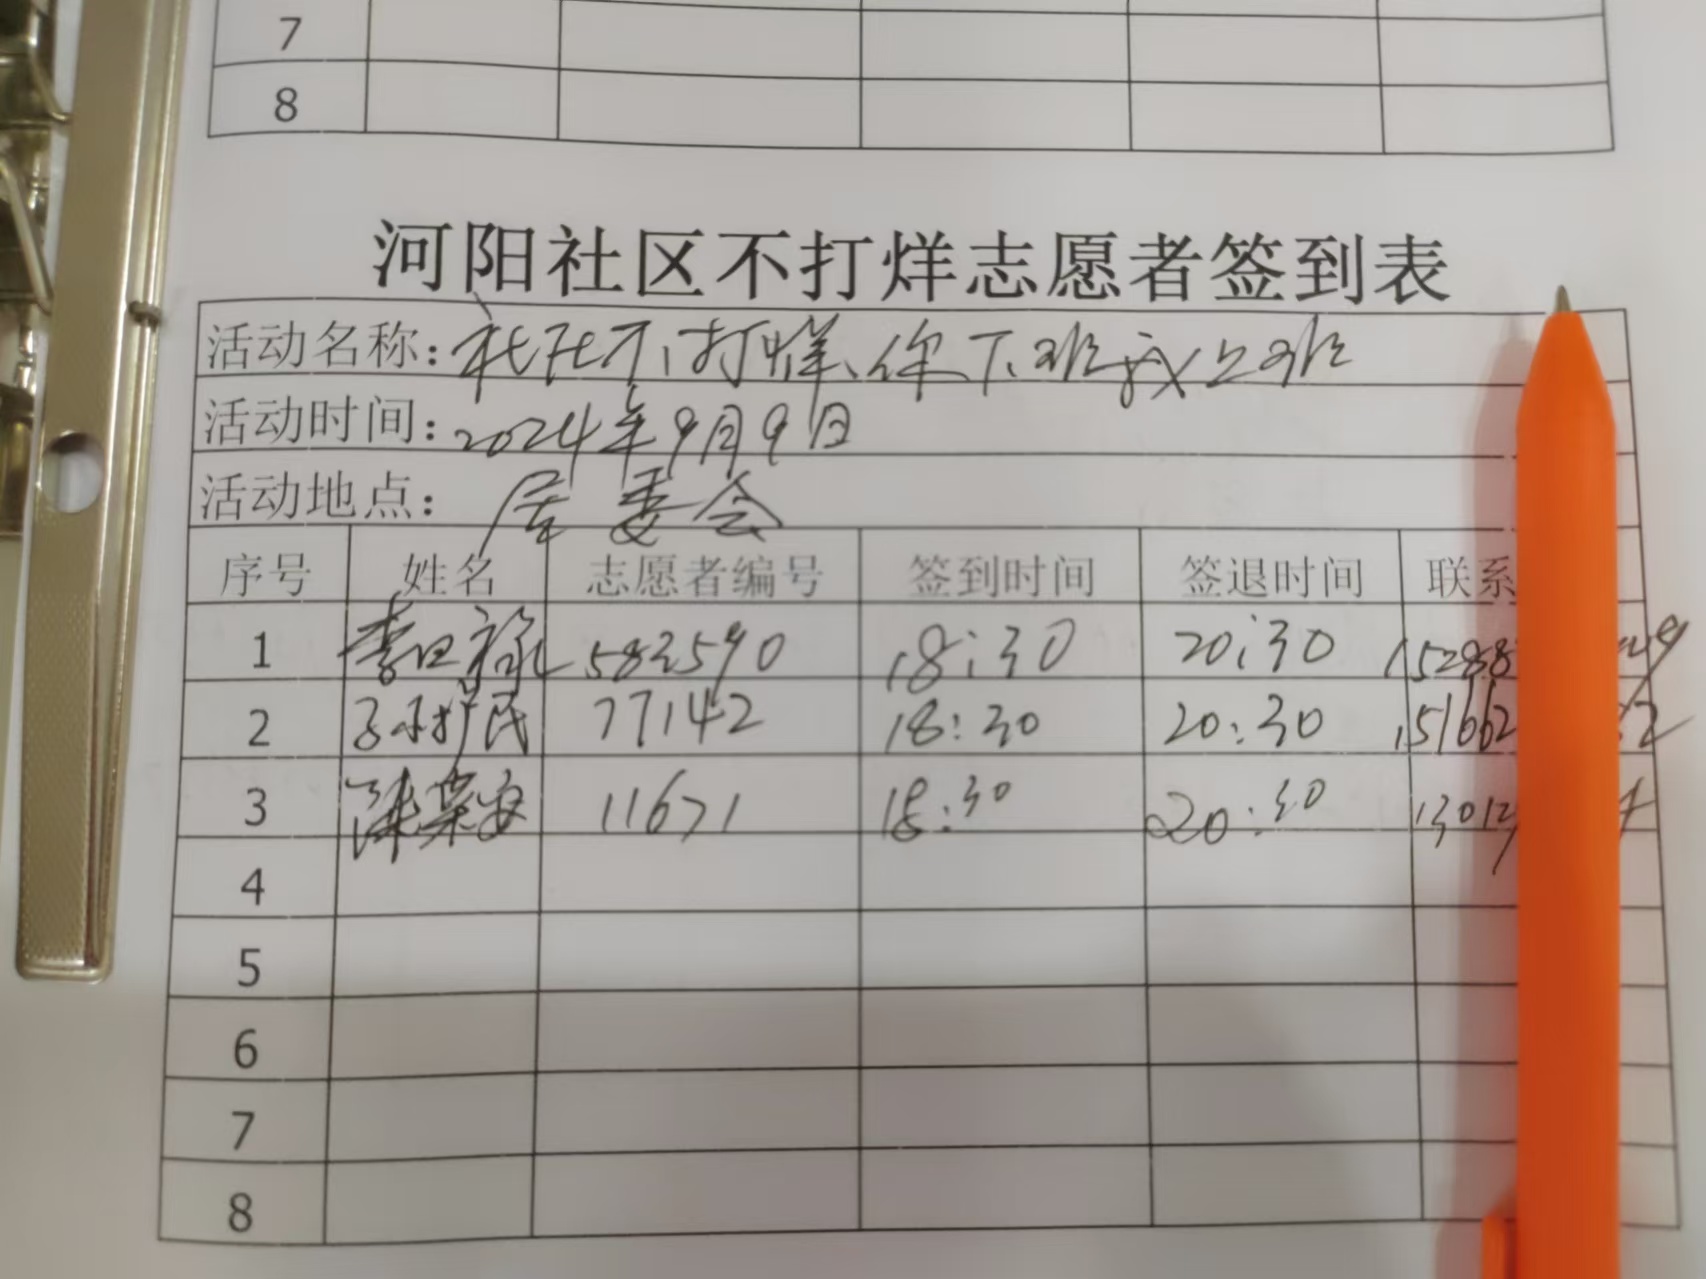 7
8
河阳社区不打烊志愿者签到表
活动名称:社区不打烊、你下班我上班
活动时间:2024年9月9日
活动地点: 居委会
序号 姓名 志愿者编号 签到时间 签退时间 联系
1 李日禄 583590 18:30 20:30 15288
2 孙护民 77142 18:30 20:30 151662
3 陈荣安 11671 18:30 20:30
4
5
6
7
8